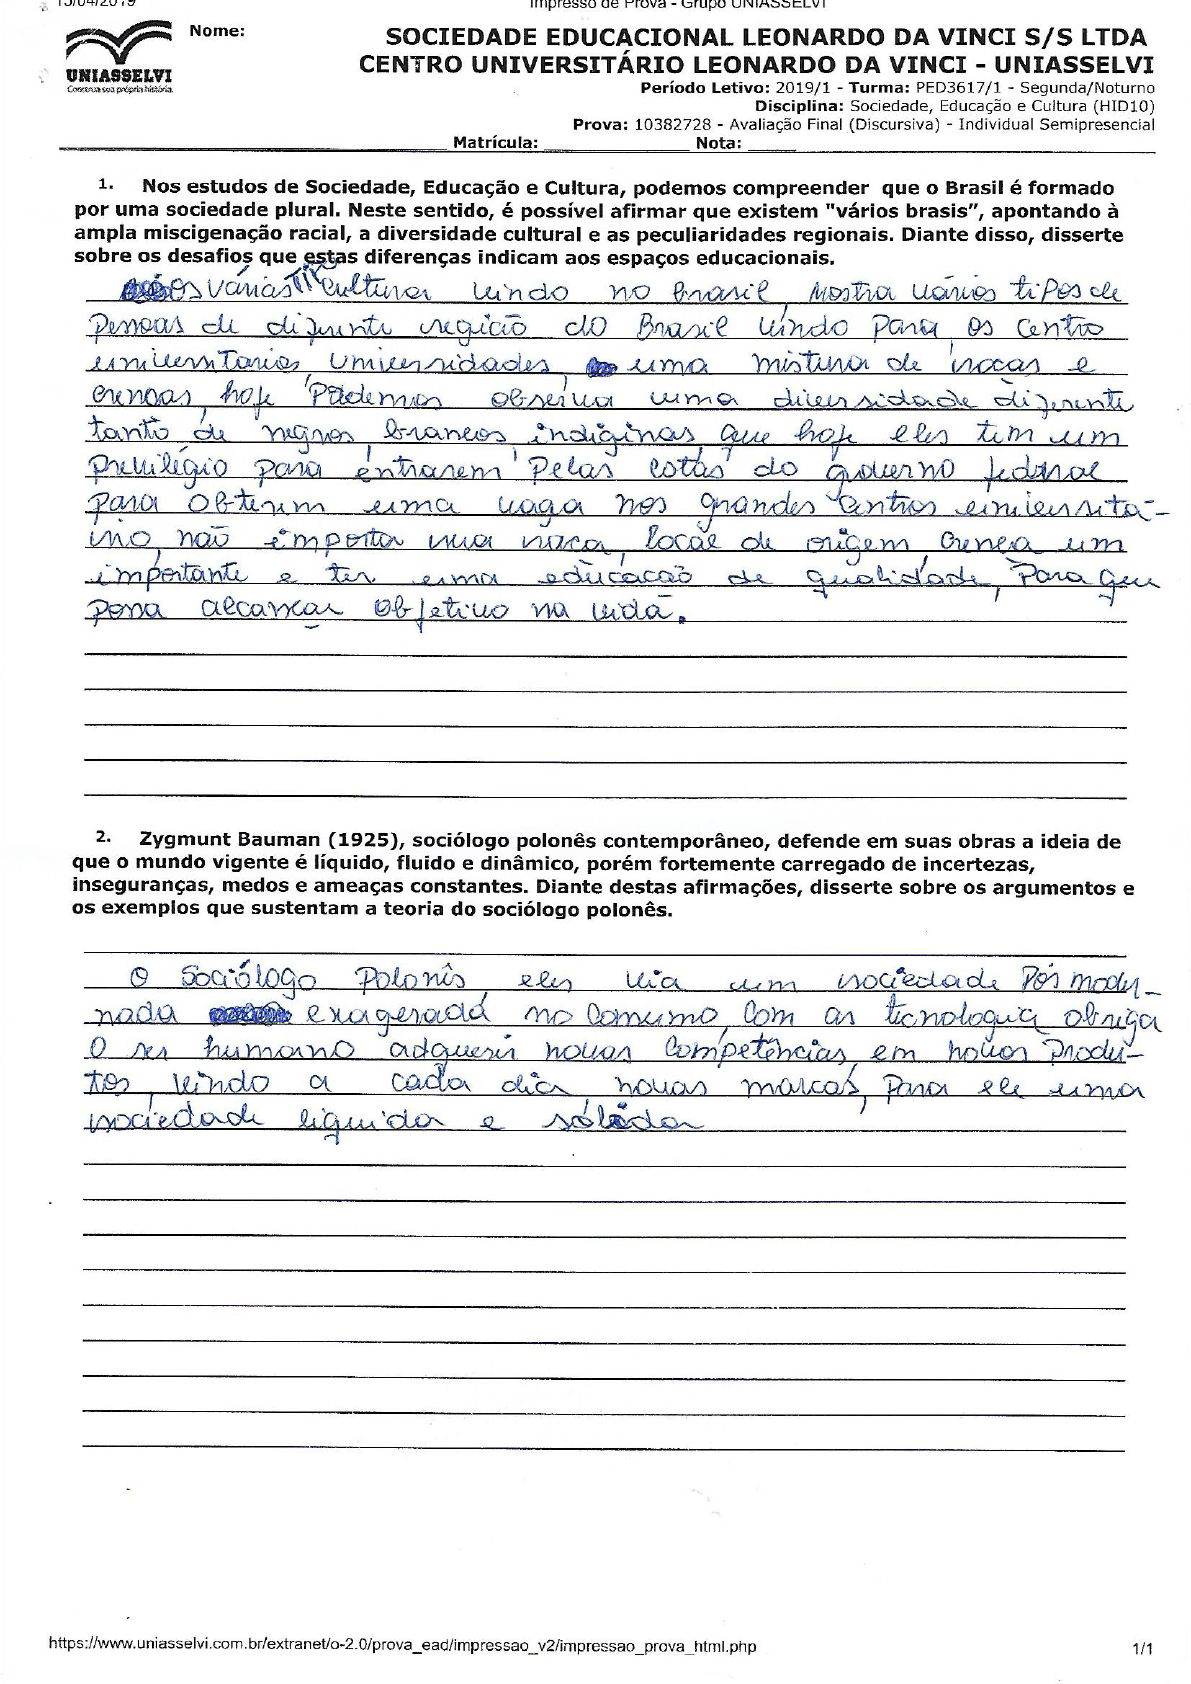 15/04/2019
Impresso de Prova - Grupo UNIASSELVI
UNIASSELVI
Construa sua própria história.
Nome:
SOCIEDADE EDUCACIONAL LEONARDO DA VINCI S/S LTDA
CENTRO UNIVERSITÁRIO LEONARDO DA VINCI - UNIASSELVI
Período Letivo: 2019/1 - Turma: PED3617/1 - Segunda/Noturno
Disciplina: Sociedade, Educação e Cultura (HID10)
Prova: 10382728 - Avaliação Final (Discursiva) - Individual Semipresencial
Matrícula: Nota:
1. Nos estudos de Sociedade, Educação e Cultura, podemos compreender que o Brasil é formado
por uma sociedade plural. Neste sentido, é possível afirmar que existem "vários brasis", apontando à
ampla miscigenação racial, a diversidade cultural e as peculiaridades regionais. Diante disso, disserte
sobre os desafios que estas diferenças indicam aos espaços educacionais.
Os várias Cultura vindo no Brasil, mostra vários tipos de
pessoas de diferente região do Brasil vindo para os centro
universitarios, Universidades, uma mistura de raças e
crenças, hoje Podemos observa uma diversidade diferente
tanto de negros, brancos, indiginas, que hoje eles tem um
previlégio para entrarem, pelas cotas do governo federal
para obterem uma vaga nos grandes centros universitá-
rio, não importa sua raça, local de origem, crença um
importante e ter uma educação de qualidade, para que
possa alcançar objetivo na vida.
2. Zygmunt Bauman (1925), sociólogo polonês contemporâneo, defende em suas obras a ideia de
que o mundo vigente é líquido, fluido e dinâmico, porém fortemente carregado de incertezas,
inseguranças, medos e ameaças constantes. Diante destas afirmações, disserte sobre os argumentos e
os exemplos que sustentam a teoria do sociólogo polonês.
O Sociólogo Polonês, eles via um sociedade Pós moder-
nada exagerada no Consumo, com as tecnologia obriga
O ser humano adquerir novas competências, em novos produ-
tos, vindo a cada dia novas marcas, para ele uma
sociedade liquida e sólida
https://www.uniasselvi.com.br/extranet/o-2.0/prova_ead/impressao_v2/impressao_prova_html.php
1/1